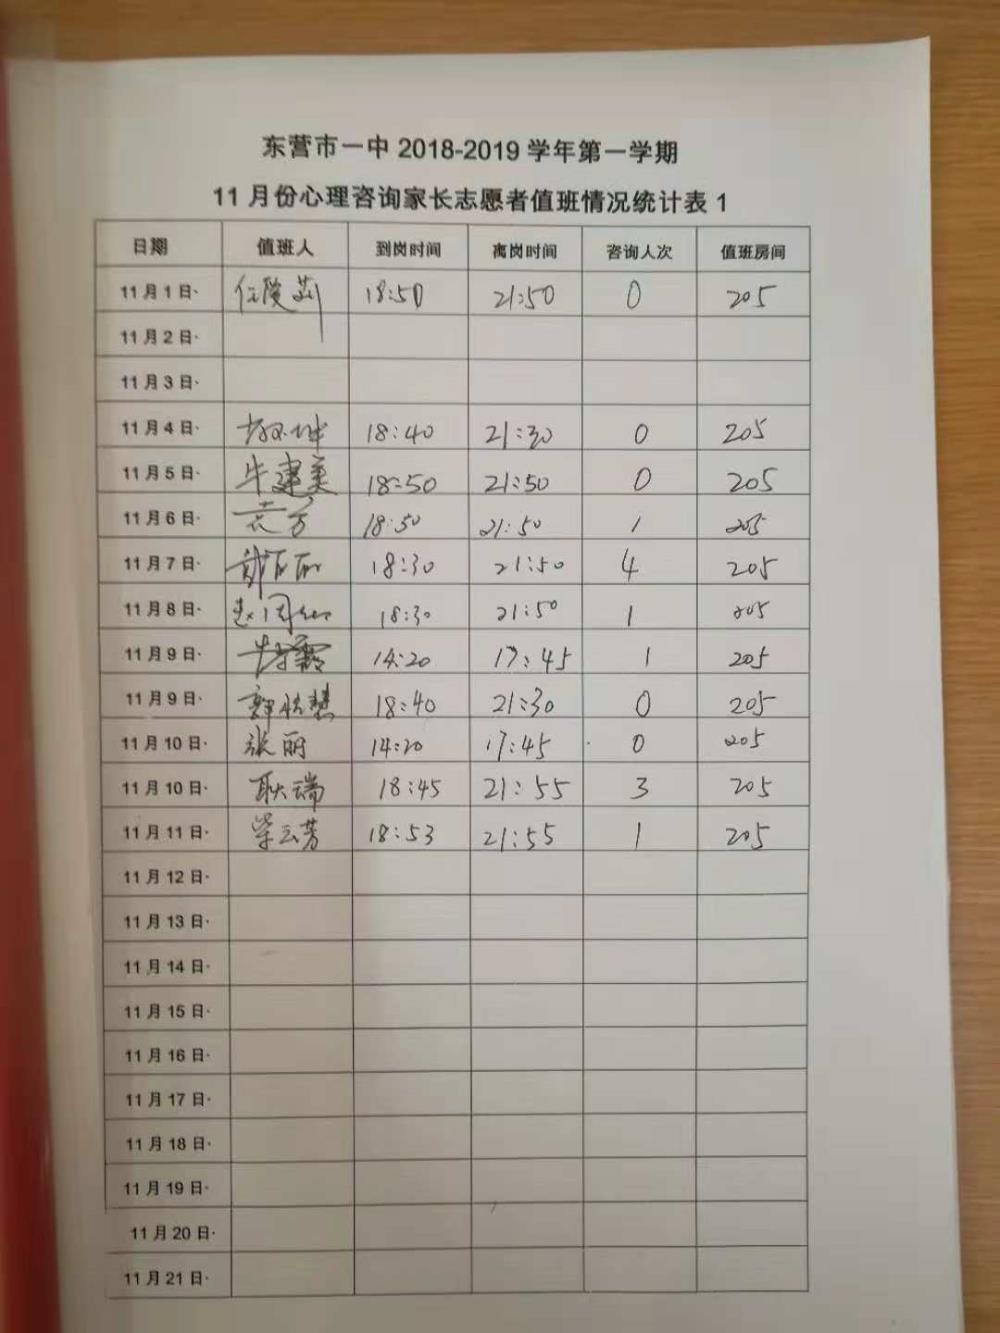 东营市一中 2018-2019 学年第一学期
11 月份心理咨询家长志愿者值班情况统计表 1
日期 值班人 到岗时间 离岗时间 咨询人次 值班房间
11 月 1 日· 18:50 21:50 0 205
11 月 2 日·
11 月 3 日·
11 月 4 日· 18:40 21:30 0 205
11 月 5 日· 牛建美 18:50 21:50 0 205
11 月 6 日· 袁方 18:50 21:50 1 205
11 月 7 日· 18:30 21:50 4 205
11 月 8 日· 18:30 21:50 1 205
11 月 9 日· 14:20 17:45 1 205
11 月 9 日· 18:40 21:30 0 205
11 月 10 日· 张丽 14:20 17:45 0 205
11 月 10 日· 耿瑞 18:45 21:55 3 205
11 月 11 日· 柴云芳 18:53 21:55 1 205
11 月 12 日·
11 月 13 日·
11 月 14 日·
11 月 15 日·
11 月 16 日·
11 月 17 日·
11 月 18 日·
11 月 19 日·
11 月 20 日·
11 月 21 日·